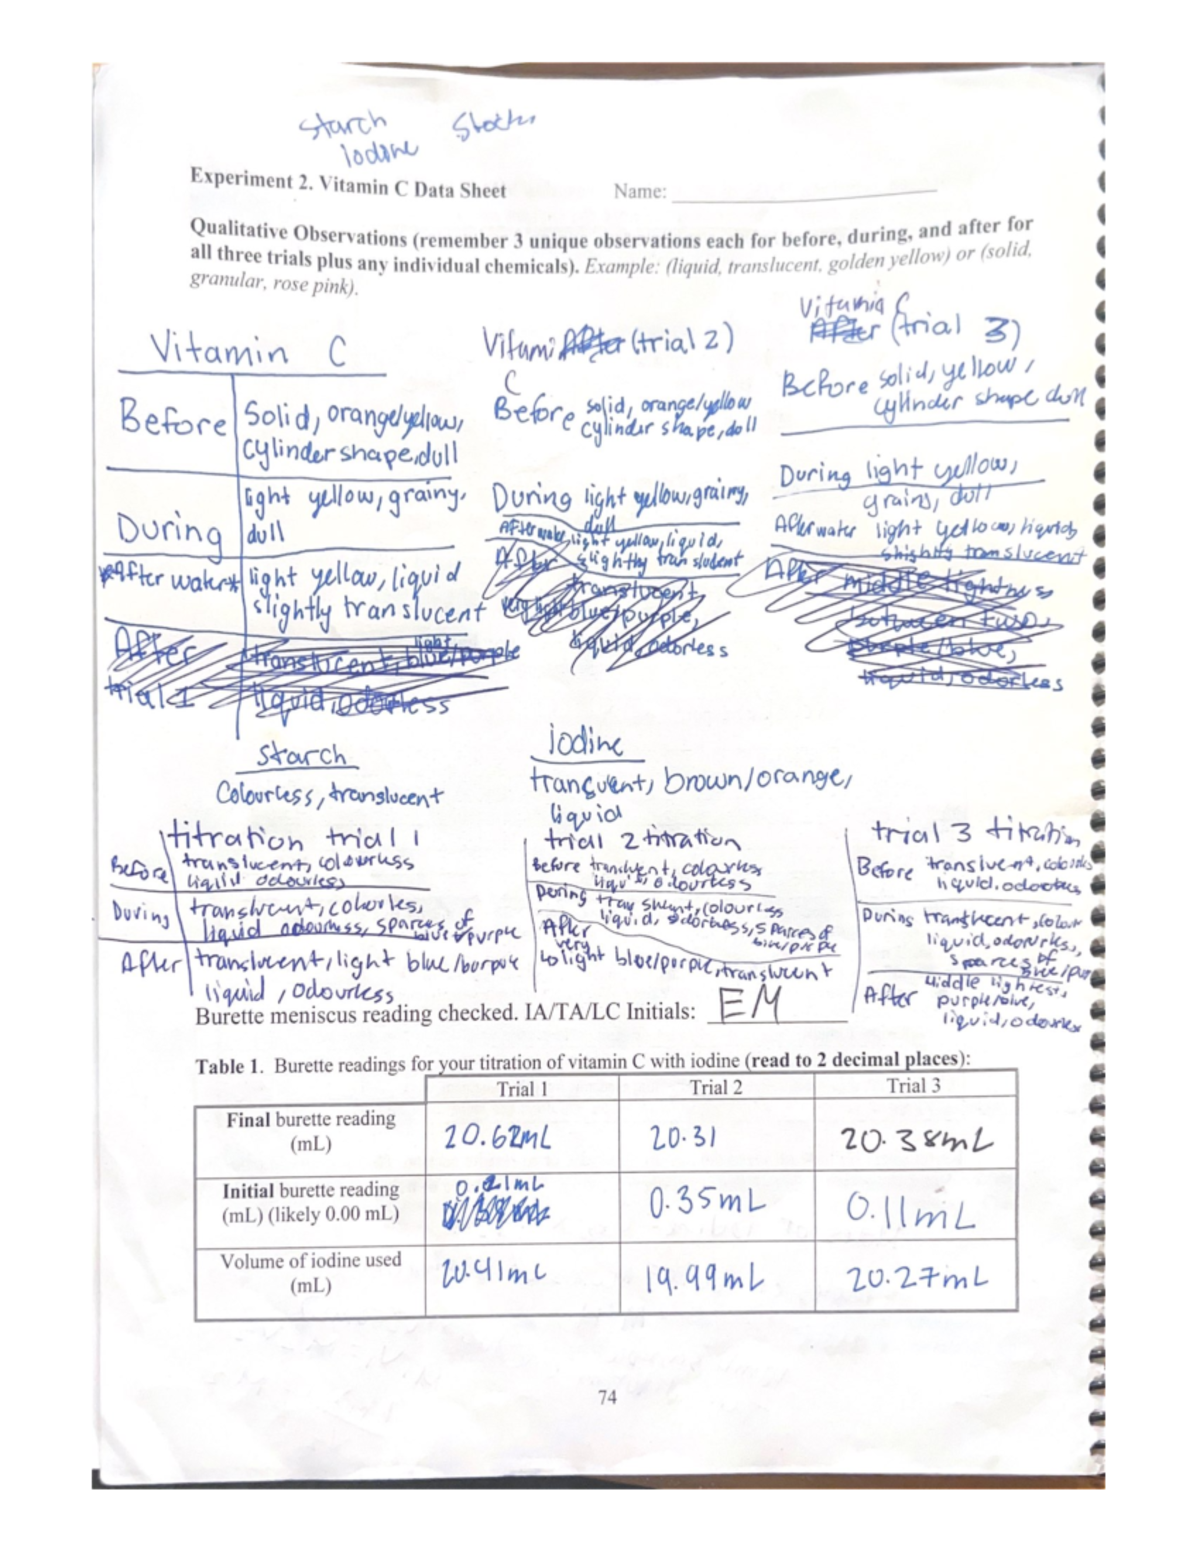 Starch
Iodine
Experiment 2. Vitamin C Data Sheet Name:
Qualitative Observations (remember 3 unique observations each for before, during, and after for
all three trials plus any individual chemicals). Example: (liquid, translucent, golden yellow) or (solid,
granular, rose pink).
Vitamin C
Before Solid, orange/yellow,
cylinder shape, dull
During light yellow, grainy,
dull
*After water* light yellow, liquid
slightly translucent
After translucent, light blue/purple
trial 1 liquid, odorless
Vitami After (trial 2)
C
Before solid, orange/yellow
cylinder shape, dull
During light yellow, grainy,
dull
After water, light yellow, liquid,
slightly translucent
After translucent,
very light blue/purple,
liquid, odorless
Vitamin C
After (trial 3)
Before solid, yellow,
cylinder shape dull
During light yellow,
grainy, dull
After water light yellow, liquid,
slightly translucent
After middle lightness
between two,
purple/blue,
liquid, odorless
Starch
Colourless, translucent
iodine
brown/orange,
liquid
titration trial 1
Before translucent, colourless
liquid odourless
During translucent, colourless,
liquid odourless, sparces of
blue/purple
After translucent, light blue/
liquid, odourless
trial 2 titration
Before translucent, colourless
liquid odourless
During colourless
liquid, odorless, sparces of
blue/purple
After
very
light blue/purple, translucent
trial 3 titration
Before translucent,
liquid, odorless
During translucent,
liquid, odorless,
sparces of
After middle lightest,
purple/blue,
liquid, odorless
Burette meniscus reading checked. IA/TA/LC Initials: EM
Table 1. Burette readings for your titration of vitamin C with iodine (read to 2 decimal places):
Trial 1 Trial 2 Trial 3
Final burette reading
(mL) 20.62mL 20.31 20.38mL
Initial burette reading
(mL) (likely 0.00 mL) 0.21mL 0.35mL 0.11mL
Volume of iodine used
(mL) 20.41mL 19.99mL 20.27mL
74